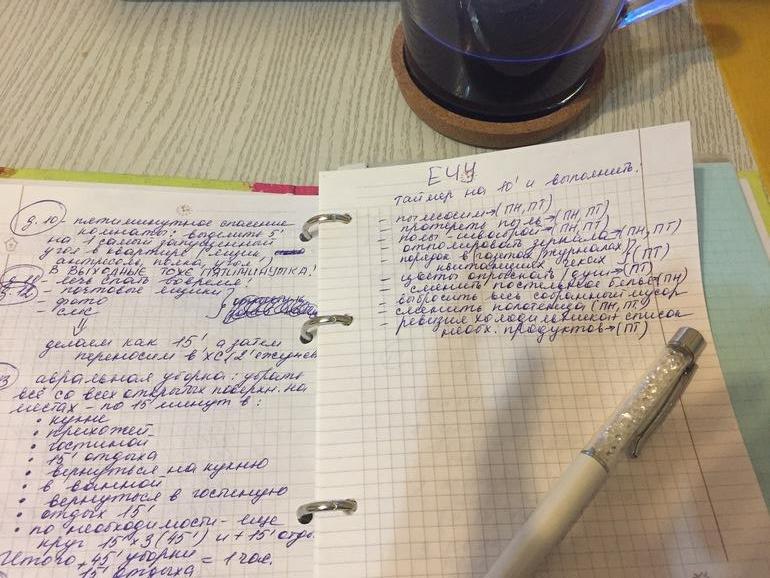 д. 10 - пятиминутное спасение
комнаты: выделить 5'
на 1 самый запущенный
угол в квартире (ящик,
антресоль, полка, угол)
В ВЫХОДНЫЕ ТОЖЕ ПЯТИМИНУТКА!
- лечь спать вовремя!
- почтовые ящики?
- фото
- смс
делаем как 15', а затем
переносим в ХС (2' ежуднев
авральная уборка: убрать
всё со всех открытых поверхн. на
местах - по 15 минут в:
• кухне
• прихожей
• гостиной
• 15' отдыха
• вернуться на кухню
• в ванной
• вернуться в гостиную
• отдых 15'
• по необходимости - еще
круг 15' х 3 (45') и + 15' отды
Итого 45' уборки
+ 15' отдыха = 1 час.
ЕЧУ
таймер на 10' и выполнить:
- пылесосим → (ПН, ПТ)
- протереть пыль → (ПН, ПТ)
- полы - шваброй → (ПН, ПТ)
- отполировать зеркала → (ПН, ПТ)
- порядок в газетах/журналах/
квитанциях, чеках } (ПТ)
- цветы опрыскать/душ → (ПТ)
- сменить постельное белье → (ПН)
- выбросить весь собранный мусор
- сменить полотенца (ПН, ПТ)
- ревизия холодильника + список
необх. продуктов → (ПТ)